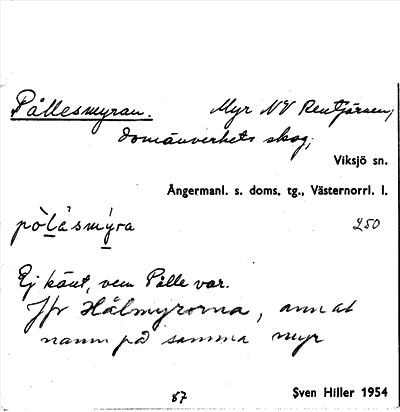 Pållesmyran. Myr NV Rentjärnen,
domänverkets skog;
Viksjö sn.
Ångermanl. s. doms. tg., Västernorrl. l.
pò̀lä̀smy̆ra 250
Ej känt, vem Pålle var.
Jfr Hålmyrorna, annat
namn på samma myr
87 Sven Hiller 1954